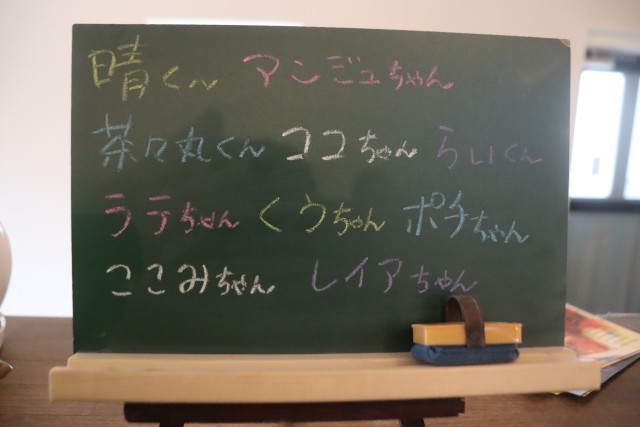 晴くん マンジュちゃん
茶々丸くん ココちゃん らいくん
ラテちゃん くうちゃん ポチちゃん
ここみちゃん レイアちゃん